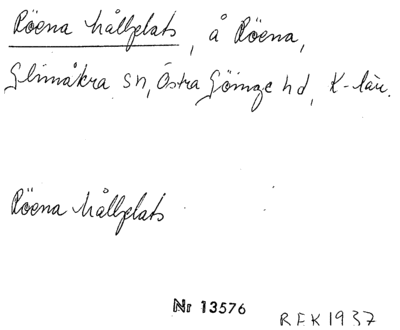 Röena hållplats, å Röena,
Glimåkra sn, Östra Göinge hd, K-län.
Röena hållplats
Nr 13576
REK 1937